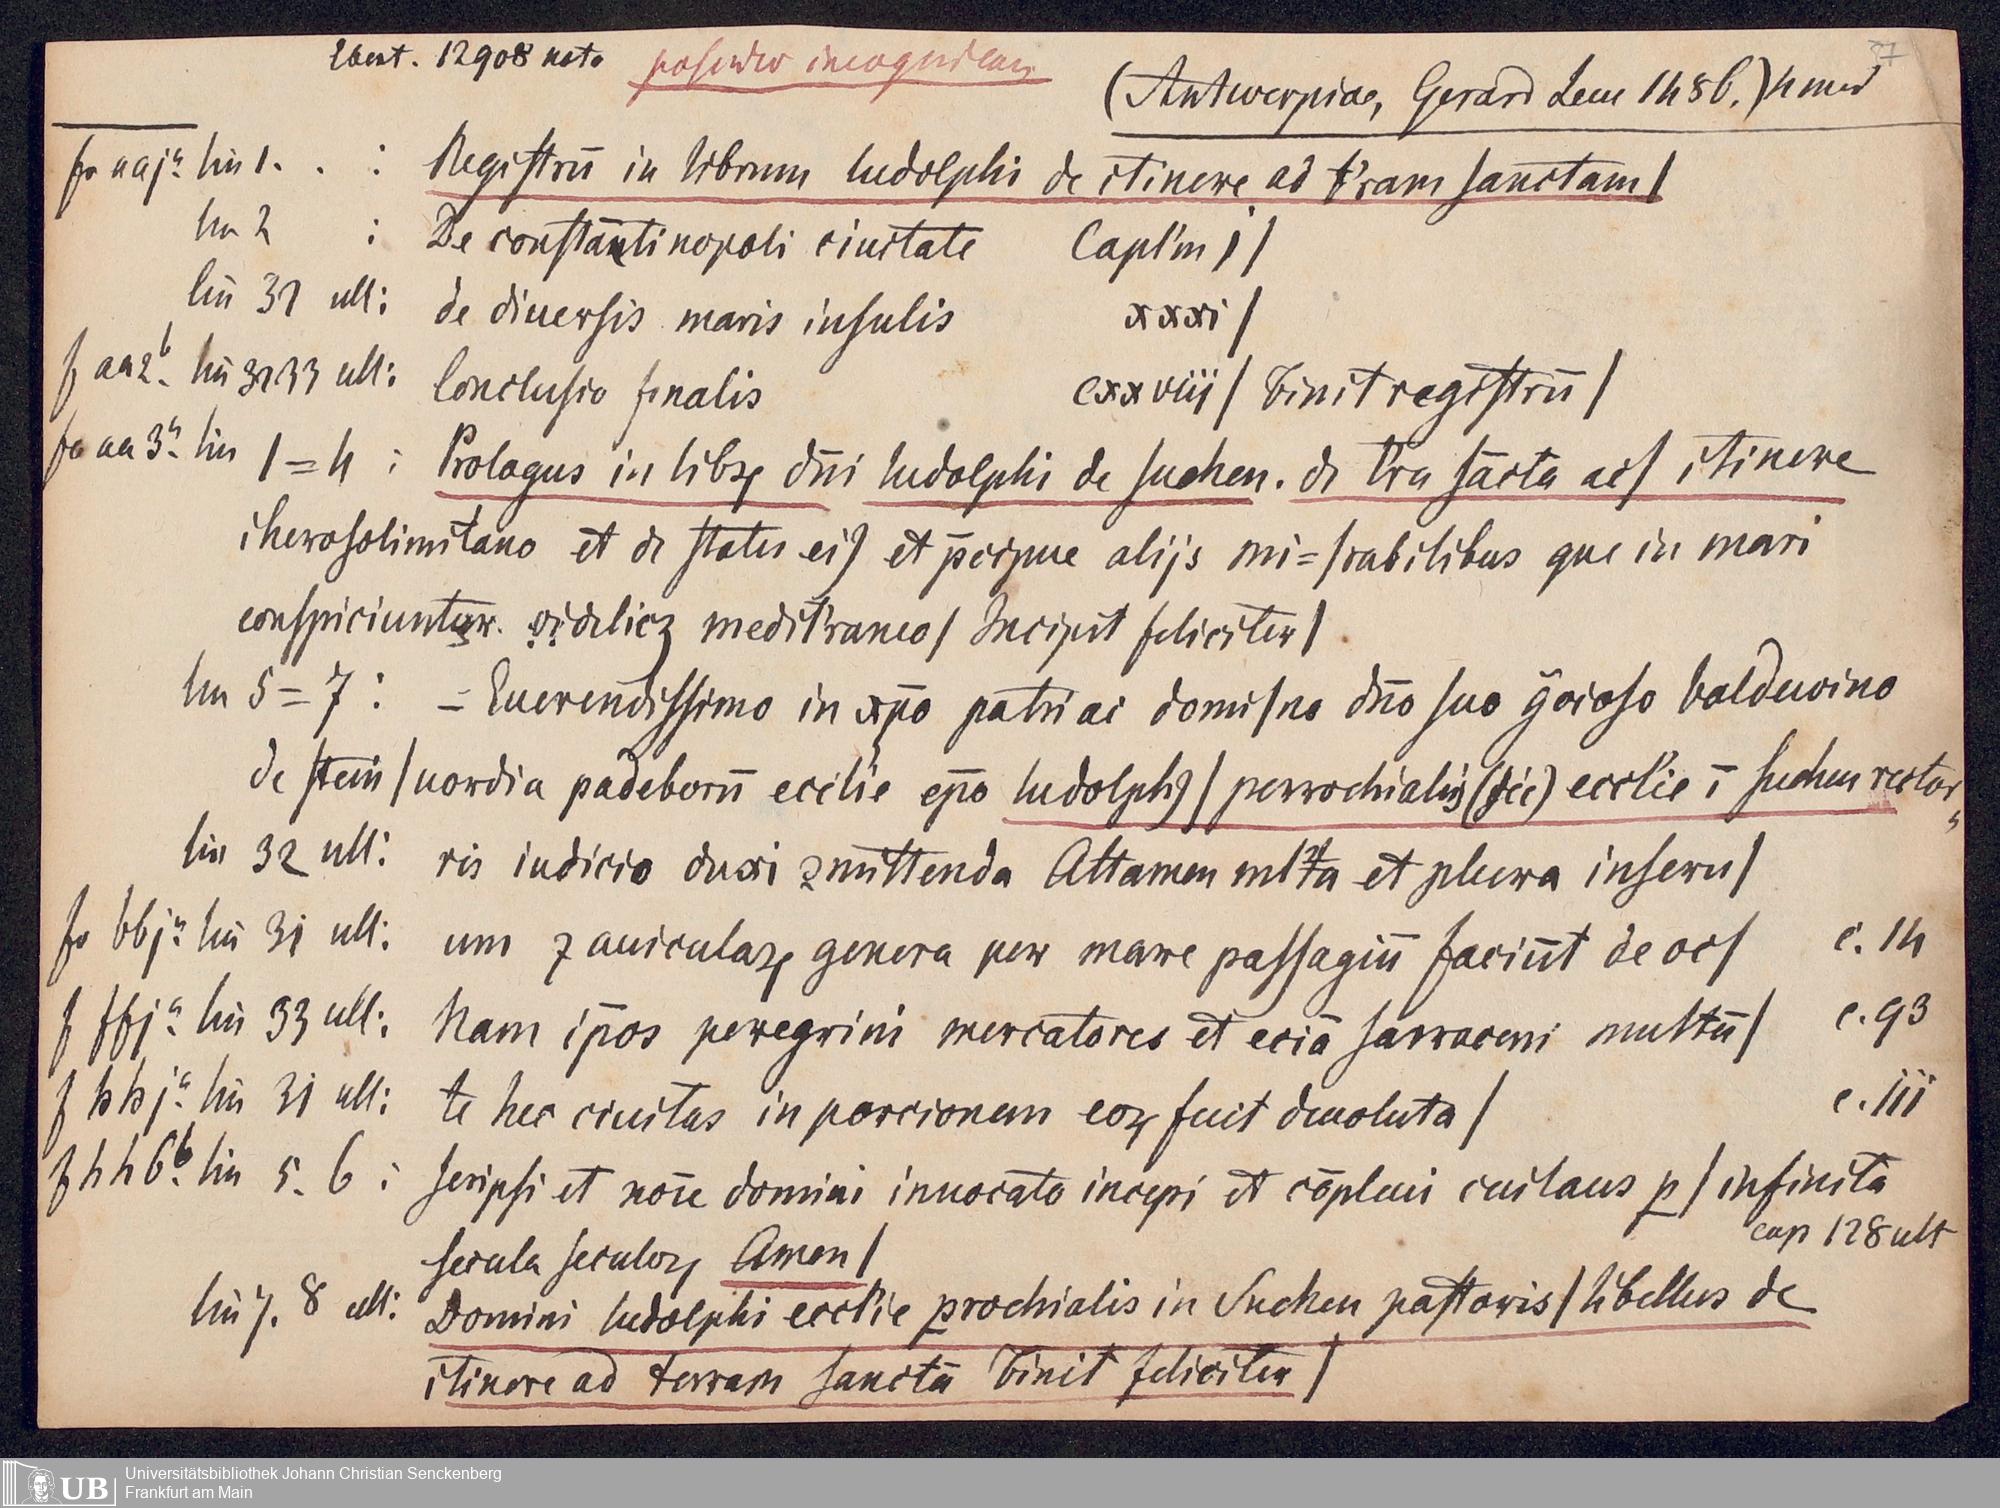 Ebert. 12908 nota
(Antwerpiae, Gerard Leeu 1486.) 4 med
87
fo aaja lin 1. . : Registrū in librum ludolphi de itinere ad t'ram sanctam/
lin 2 : De constantinopoli ciuitate Capl'm j/
lin 31 ult: de diuersis maris insulis xxxi/
f aa2b. lin 33 ult: Conclusio finalis cxxviij/ Finit registrū/
fo aa 3a. lin 1=4 : Prologus in libꝝ dn̄i ludolphi de suchen. de t'ra sāctā ac/ itinere
iherosolimitano et de statu eiꝰ et p̄cipue alijs mi=/rabilibus que in mari
conspiciuntur. videlicꝫ medit'raneo/ Incipit feliciter/
lin 5=7 : =Euerendissimo in xp̄o patri ac domi/no dn̄o suo ḡcioso baldewino
de stein/uordia padebornn̄ eccl'ie ep̄o ludolphꝰ/ perrochialis (sic) eccl'ie ī suchen rector
lin 32 ult: ris iudicio duxi ꝯmittenda Attamen ml'ta et plura inseru/
fo bbja. lin 31 ult: um ⁊ auiculaꝝ genera per mare passagiū faciūt de oc/ c. 14
f ffja. lin 33 ult: Nam ip̄os peregrini mercatores et eciā sarraceni multū/ c. 93
f hhja. lin 31 ult: te hec ciuitas in porcionem eoꝝ fuit deuoluta/ c. 111
f hh6b. lin 5. 6 : scripsi et nōie domini inuocato incepi et cōpleui cui laus p/ infinita
secula seculoꝝ Amen/ cap 128 ult
lin 7. 8 ult: Domini ludolphi eccl'ie ꝑrochialis in Suchen pastoris/ libellus de
itinere ad terram sanctā Finit feliciter/
UB
Universitätsbibliothek Johann Christian Senckenberg
Frankfurt am Main